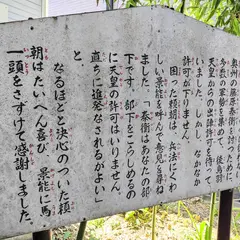 奥州の藤原泰衡を討つために
多数の軍勢を集めて、後鳥羽
天皇からの出陣許可を待って
いました。しかしなかなか
許可が下りません。
困った頼朝は、兵法にくわ
しい景能を呼んで意見を尋ね
ました。「泰衡はあなたの部
下です。部下をこらしめるの
に天皇の許可はいりません。
直ちに進発なされるがよい」
と、
なるほどと決心のついた頼
朝はたいへん喜び 景能に馬
一頭をさずけて感謝しました。